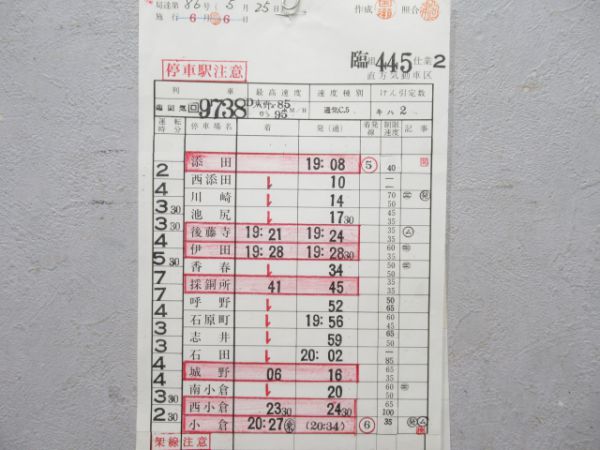 局達第86号(5月25日)
施行6月6日
作成 照合
停車駅注意
臨 445 仕業2
直方気動車区
列車 最高速度 速度種別 けん引定数
臨回気回9738D 85
95 通気C5 キハ2
運転時分 停車場名 着 発(通) 着発線 制限速度 記事
添田 19:08 5 40
2 西添田 10
4 川崎 14 70 50
3 30 池尻 17 30 45 35
3 30 後藤寺 19:21 19:24 35 35
4 伊田 19:28 19:28 30
5 30 香春 34 50 50
7 採銅所 41 45 35 35
7 呼野 52 50 65
4 石原町 19:56 60 50
3 志井 59 65
3 石田 20:02 85
4 城野 06 16
4 南小倉 20
3 30 西小倉 23 30 24 30 65 100
2 30 小倉 20:27 (20:34) 6 35
架線注意